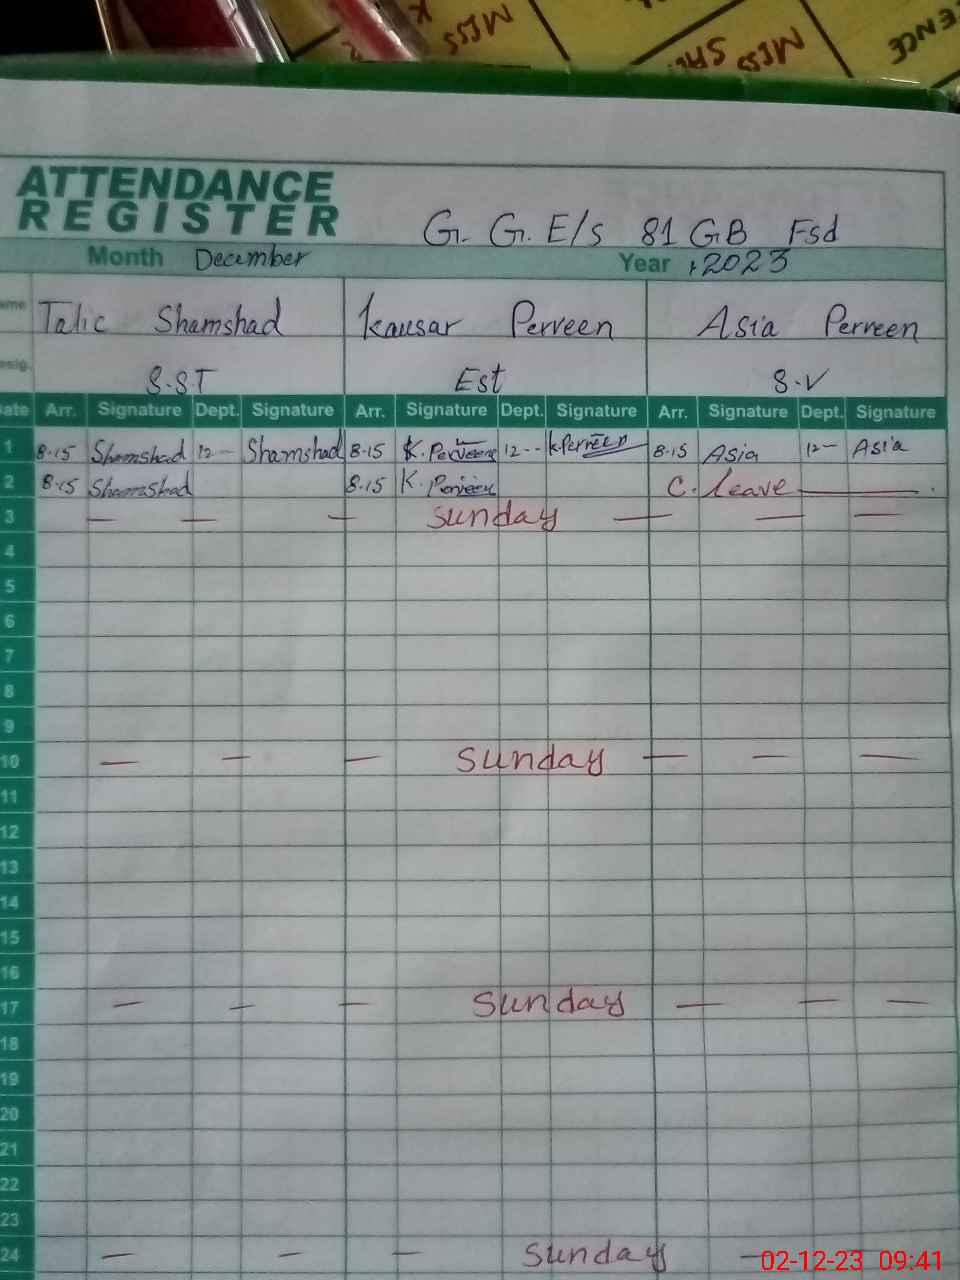 MESS
MESS SAL
ENCE
ATTENDANCE
REGISTER
G. G. E/s 81 GB Fsd
Month December Year 2023
ame Talic Shamshad Kausar Perveen Asia Perveen
esig. S.ST Est S.V
Date Arr. Signature Dept. Signature Arr. Signature Dept. Signature Arr. Signature Dept. Signature
1 8.15 Shamshad 12- Shamshad 8.15 K. Perveen 12-- K.Perveen 8.15 Asia 12- Asia
2 8.15 Shamshad 8.15 K. Perveen C. leave
3 Sunday
4
5
6
7
8
9
10 Sunday
11
12
13
14
15
16
17 Sunday
18
19
20
21
22
23
24 Sunday
02-12-23 09:41